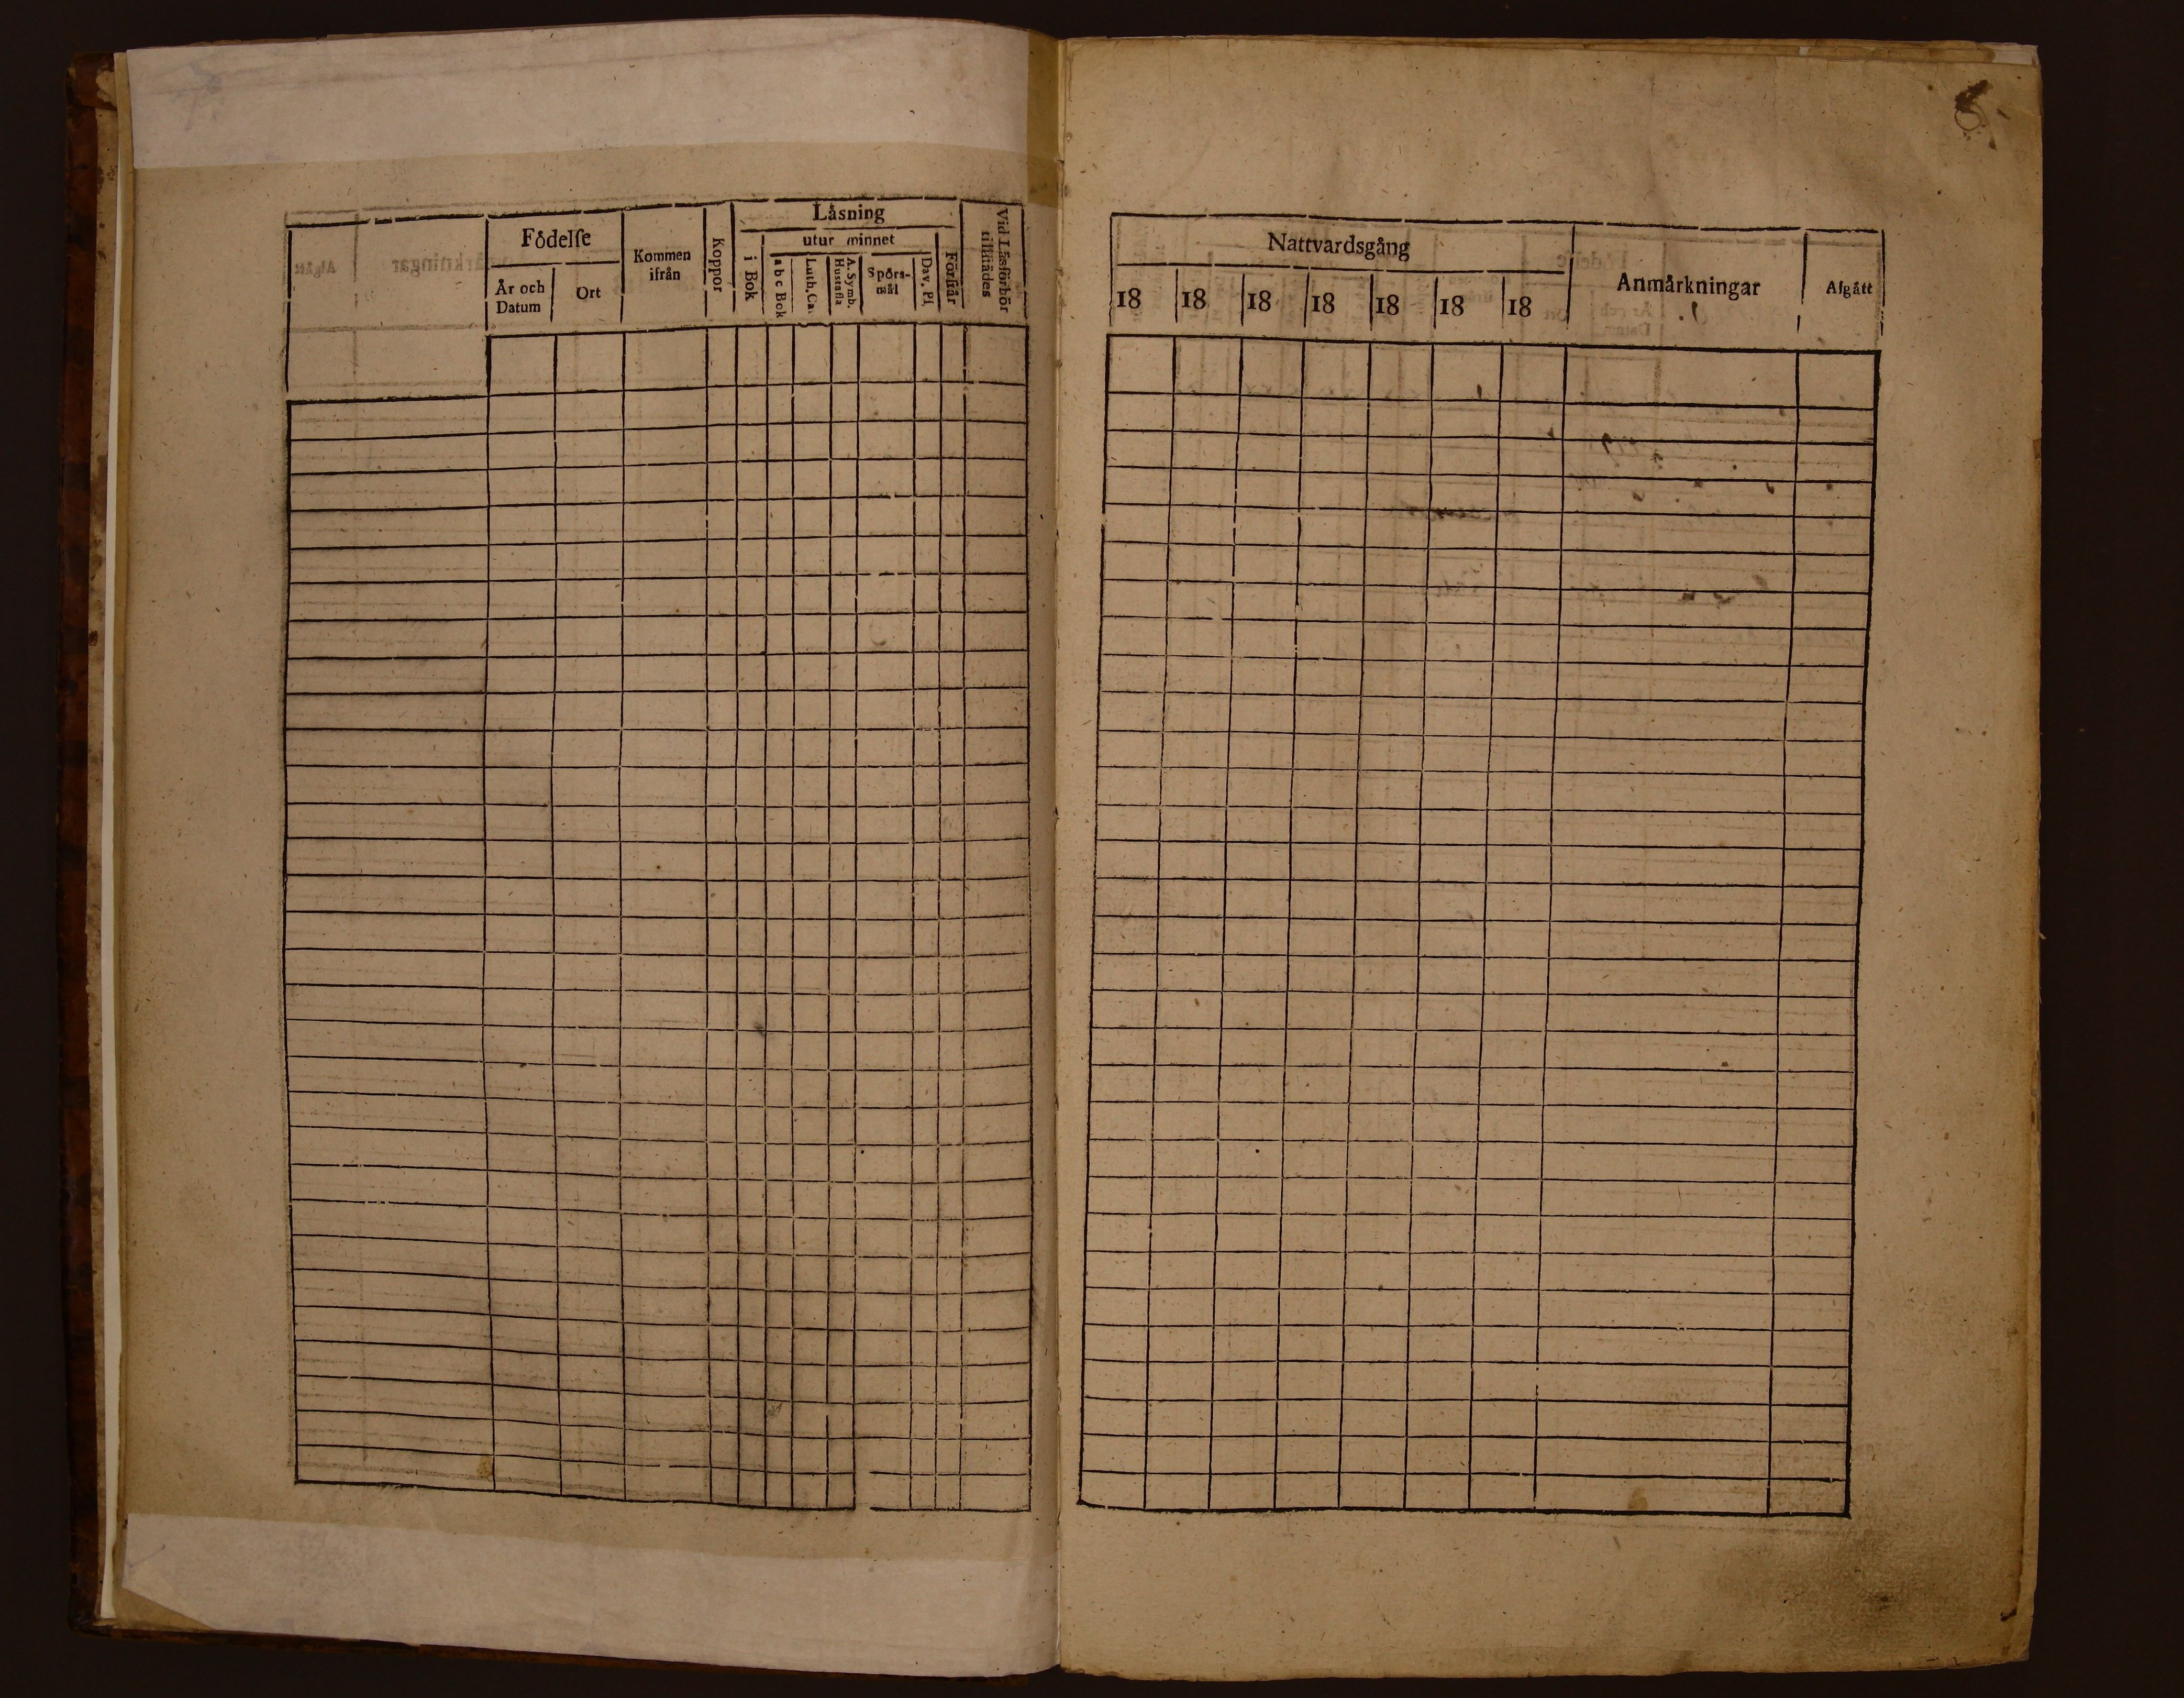 Låsning
Födelse
Kommen
ifrån
Koppor
utur minnet
Vid Låsförhör
tillstädes
År och
Datum
Ort
i Bok
abc Bok
Luth. Ca.
A. Symb.
Hustafla
Spörs-
mål
Dav. Ps.
Förstår
Nattvardsgång
Anmårkningar
Afgått
18 18 18 18 18 18 18